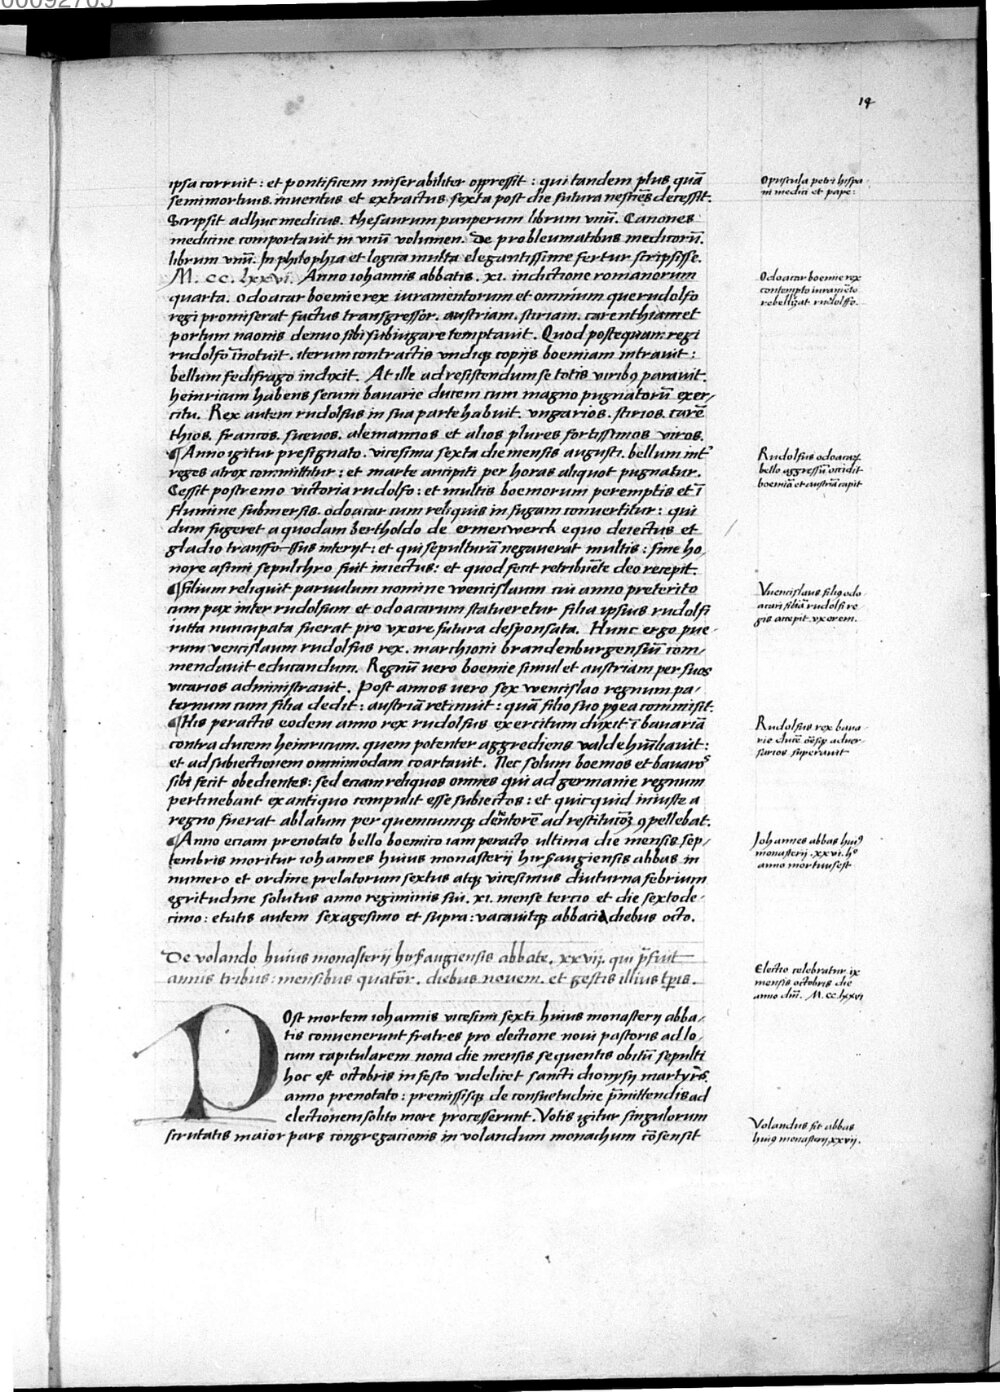 00092703
19
ipsa corruit : et pontificem miserabiliter oppressit : qui tandem plus quā
semimortuus inuentus et extractus sexta post die futura nesciēs decessit.
Scripsit adhuc medicus. thesaurum pauperum librum vnū. Canones
medicine comportauit in vnū volumen. De probleumatibus medicorū.
librum vnū. In philophia et logica multa elegantissime fertur scripsisse.
M. cc. lxxvi. Anno iohannis abbatis. xi. indictione romanorum
quarta. odoacar boemie rex iuramentorum et omnium que rudolfo
regi promiserat factus transgressor. austriam. stiriam. carenthiam et
portum naonis denuo sibi subiugare temptauit. Quod postequam regi
rudolfo īnotuit. iterum contractis vndiqꝫ copijs boemiam intrauit :
bellum fedifrago indixit. At ille ad resistendum se totis viribꝰ parauit.
heinricum habens secum bauarie ducem cum magno pugnatorū exer/
citu. Rex autem rudolfus in sua parte habuit. vngarios. stirios. carē
thios. francos. sueuos. alemannos et alios plures fortissimos viros.
¶Anno igitur presignato. vicesima sexta die mensis augusti. bellum intʳ
reges atrox committitur : et marte ancipiti per horas aliquot pugnatur.
Cessit postremo victoria rudolfo : et multis boemorum peremptis et ī
flumine submersis. odoacar cum reliquis in fugam conuertitur : qui
dum fugeret a quodam bertholdo de ermenwerck equo deiectus et
gladio transfossus interijt : et qui sepulturā negauerat multis : sine ho/
nore asini sepulchro fuit iniectus : et quod fecit retribuēte deo recepit.
¶filium reliquit paruulum nomine wencislaum cui anno preterito
cum pax inter rudolfum et odoacarum statueretur filia ipsius rudolfi
iutta nuncupata fuerat pro vxore futura desponsata. Hunc ergo pue/
rum vencislaum rudolfus rex. marchioni brandenburgensiū com/
mendauit educandum. Regnū uero boemie simul et austriam per suos
vicarios administrauit. Post annos uero sex wencislao regnum pa/
ternum cum filia dedit : austriā retinuit : quā filio suo postea commisit.
¶His peractis eodem anno rex rudolfus exercitum duxit ī bauariā
contra ducem heinricum. quem potenter aggrediens valde hūiliauit :
et ad subiectionem omnimodam coartauit. Nec solum boemos et bauaros
sibi fecit obedientes : sed eciam reliquos omnes qui ad germanie regnum
pertinebant ex antiquo compulit esse subiectos : et quicquid iniuste a
regno fuerat ablatum per quemcumqꝫ dētentorē ad restitucōꝫ ꝯpellebat.
¶Anno eciam prenotato bello boemico iam peracto ultima die mensis sep/
tembris moritur iohannes huius monasterij hirsaugiensis abbas in
numero et ordine prelatorum sextus atqꝫ vicesimus diuturna febrium
egritudine solutus anno regiminis sui. xi. mense tercio et die sextode/
cimo : etatis autem sexagesimo et supra : vacauitqꝫ abbacia diebus octo.
De volando huius monasterij hirsaugiensis abbate. xxvij. qui p̄fuit
annis tribus : mensibus quatuor. diebus nouem. et gestis illius tp̄is.
Post mortem iohannis vicesimi sexti huius monasterij abba/
tis conuenerunt fratres pro electione noui pastoris ad lo/
cum capitularem nona die mensis sequentis obitū sepulti
hoc est octobris in festo videlicet sancti dionysij martyris
anno prenotato : premissisqꝫ de consuetudine p̄mittendis ad
electionem solito more processerunt. Votis igitur singulorum
scrutatis maior pars congregacionis in volandum monachum cōsensit
Opuscula petri hispa
ni medici et pape :
Odoacar boemie rex
contempto iuramēto
rebellizat rudolfo.
Rudolfus odoacaꝝ
bello aggressū occidit
boemiā et austriā capit
Vuencislaus filiꝰ odo
acari filiā rudolfi re
gis accepit vxorem.
Rudolfus rex baua
rie ducē oēsqꝫ aduer
sarios superauit
Johannes abbas huiꝰ
monasterij xxvi. hº
anno mortuus est
Electio celebratur ix
mensis octobris die
anno dnī. M. cc lxxvi
Volandus fit abbas
huiꝰ monasterij xxvij.